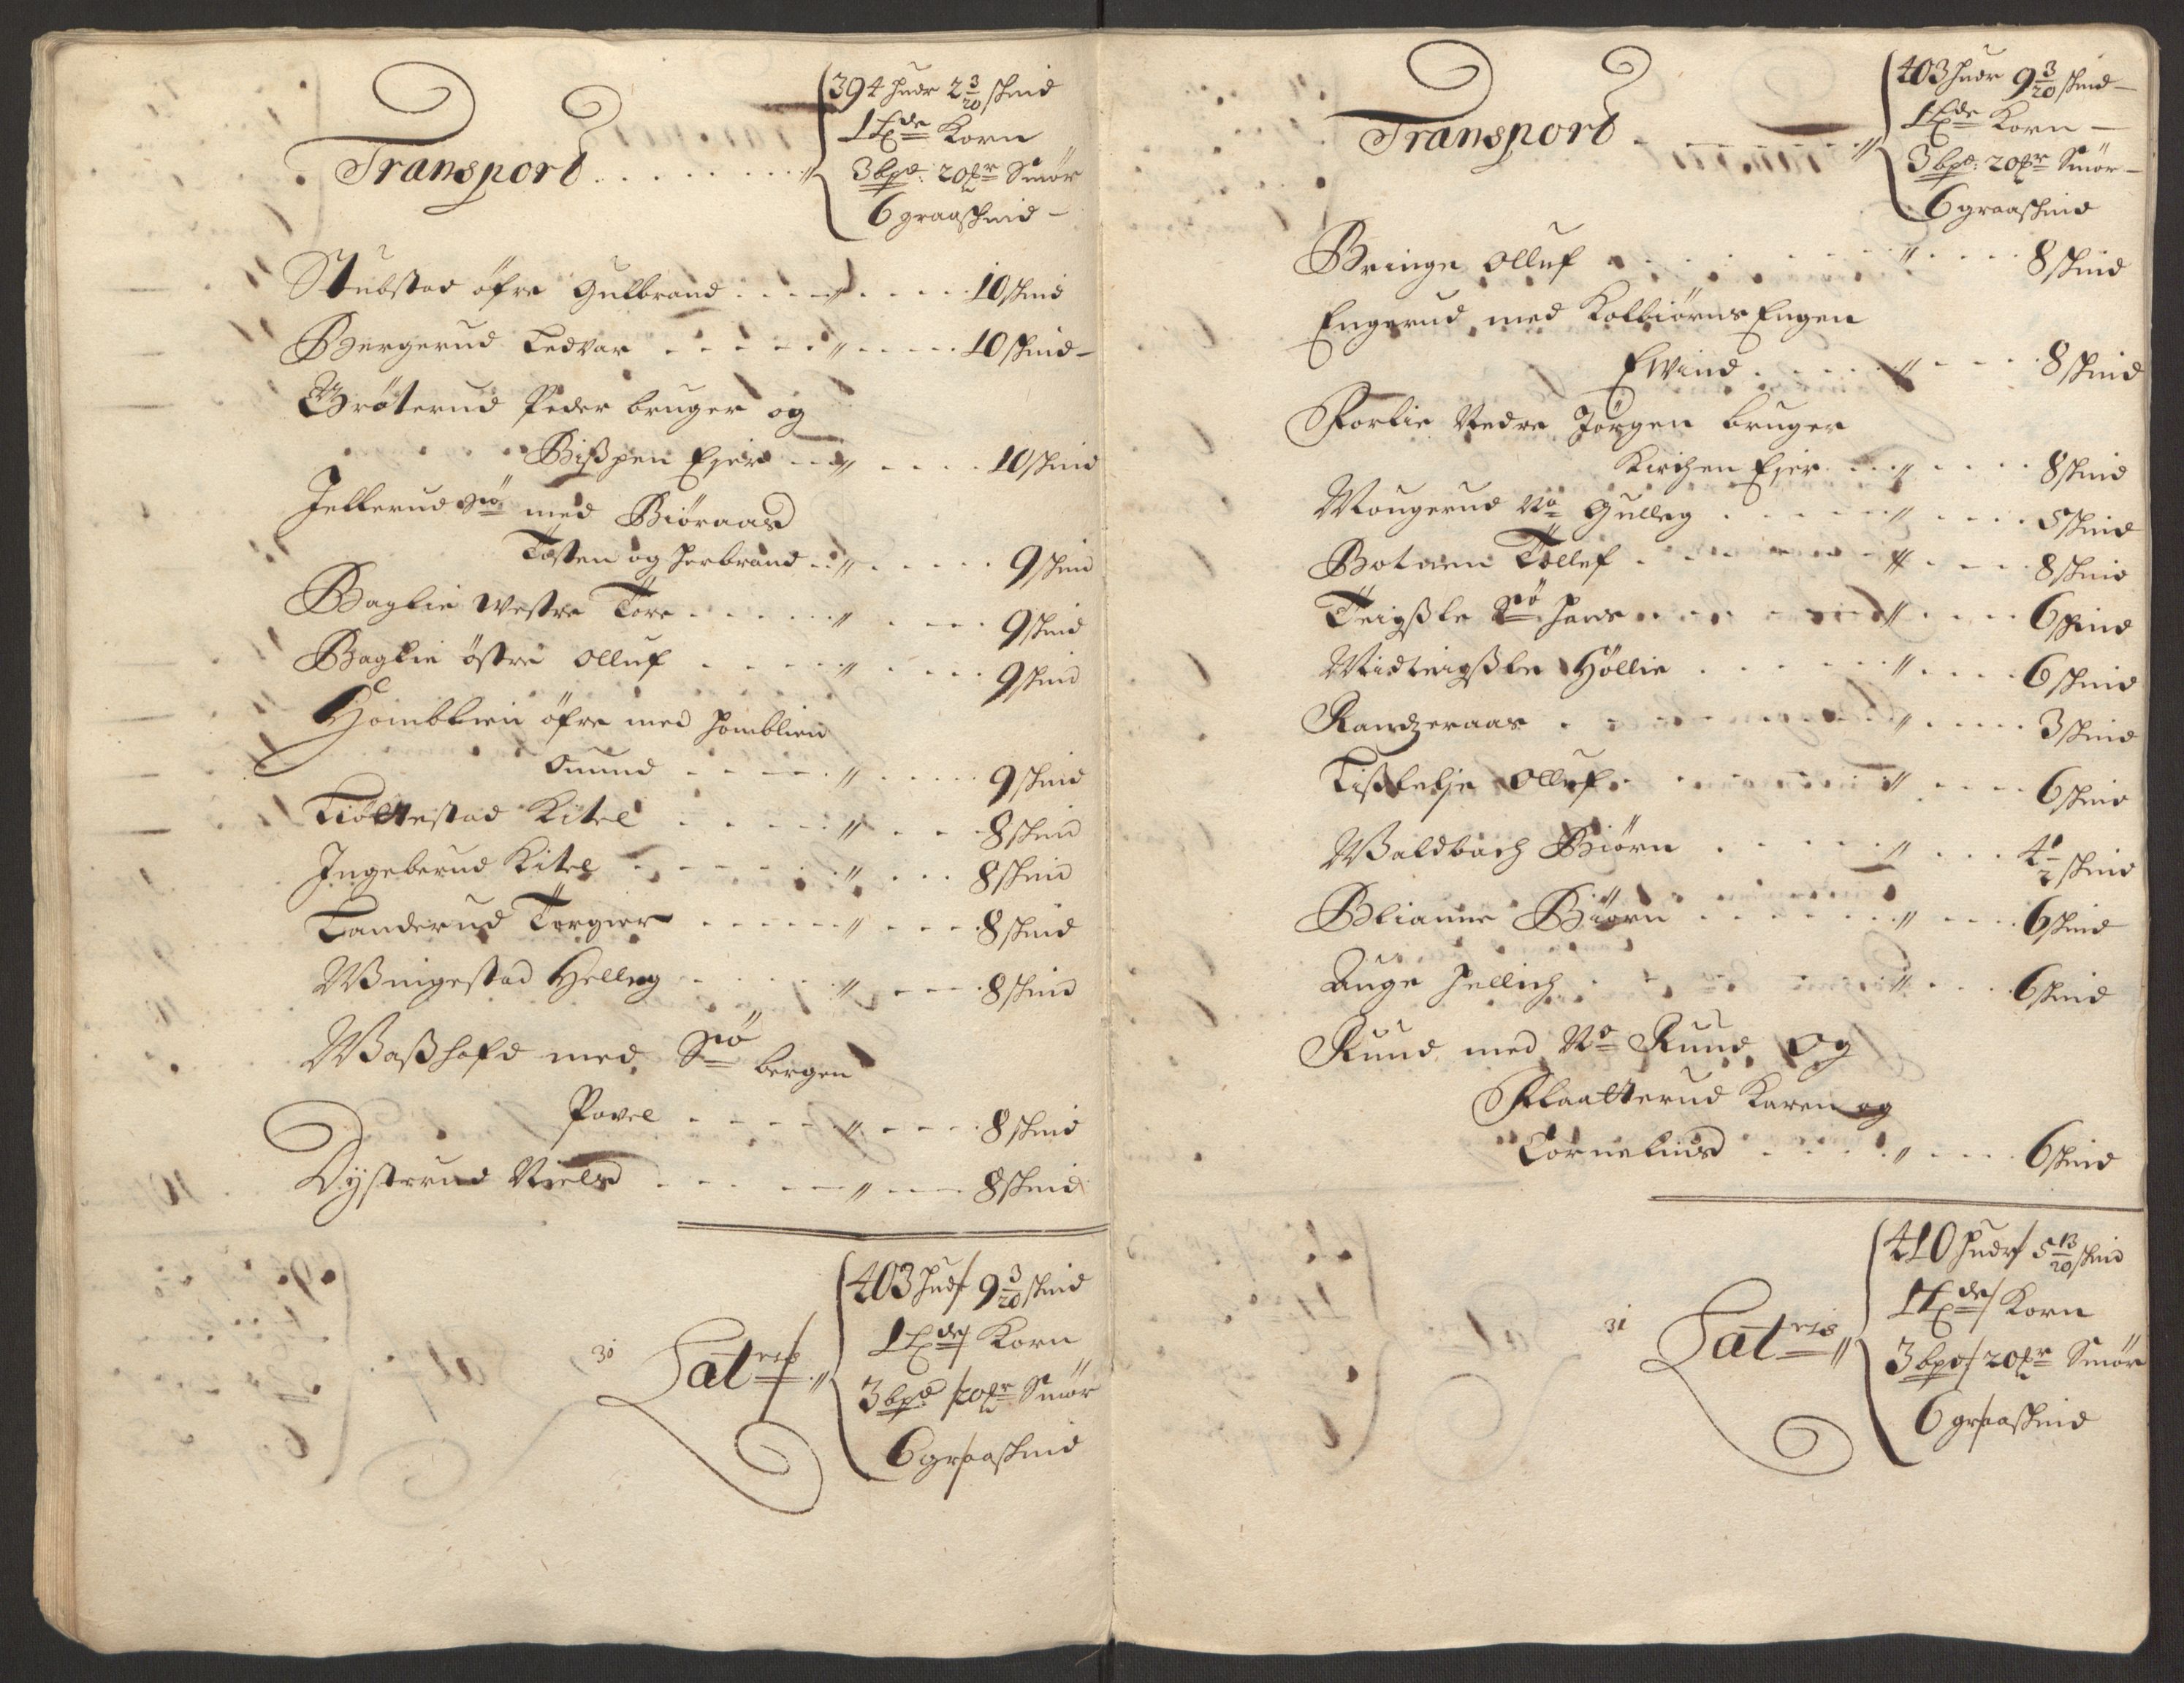 Transport . . . . . . . . . //
394 hudr 2 3/20 skind
1 T de Korn
3 bpd: 20 pr Smör
6 graaskind -
Stubstad öfre Gulbrand . . . . // . . . . 10 skind
Bergerud Tedvar . . . . . // . . . . 10 skind -
Gröterud Peder bruger og
Bißpen Ejer . . // . . . . 10 skind
Jellerud Sö med Biöraas
Tosten og Herbrand . . // . . . . 9 skind
Baglie westre Tore . . . . . // . . . 9 skind
Baglie östre Olluf . . . . . // . . . . 9 skind
Homblien öfre med Homblien
Omund . . . . . // . . . . 9 skind
Tiöllestad Kitel . . . . . // . . . 8 skind
Ingeberud Kitel . . . . . // . . . 8 skind
Tanderud Torgier . . . . . // . . . 8 skind
Wingestad Helleg . . . . . // . . . 8 skind
Waßhofd med Sö bergen
Povel . . . . . // . . . . 8 skind
Dysterud Niels . . . . . // . . . 8 skind
403 hudr 9 3/20 skind
1 T de Korn
30 Lat ris //
3 bpd / 20 pr Smör
6 graaskind
Transport . . . . . . . //
403 hudr 9 3/20 skind -
1 T de Korn -
3 bpd: 20 pr Smör -
6 graaskind
Bringe Olluf . . . . . . // . . . . 8 skind
Engerud med Kolbiörns Engen
Ewind . . . . . // . . . . 8 skind
Forlie Nedre Jörgen bruger
Kirchen Ejer . . . // . . . . 8 skind
Mougerud No Gulleg . . . . . // . . . . 5 skind
Botnen Tollef . . . . . // . . . . 8 skind
Teigßle Sö Hans . . . . . // . . . . 6 skind
Midteigßle Höllie . . . . . // . . . . 6 skind
Randzeraas . . . . . // . . . . 3 skind
Tißlelje Olluf . . . . . // . . . . 6 skind
Waldbach Biörn . . . . . // . . . 4 1/2 skind
Blianne Biörn . . . . . // . . . . 6 skind
Auge Hellich . . . . . // . . . . 6 skind
Ruud med No Ruud og
Flaatterud Karen og
Cornelius . . . . . // . . . . 6 skind
410 hudr 5 13/20 skind
1 T de Korn
31 Lat ris //
3 bpd / 20 pr Smör
6 graaskind